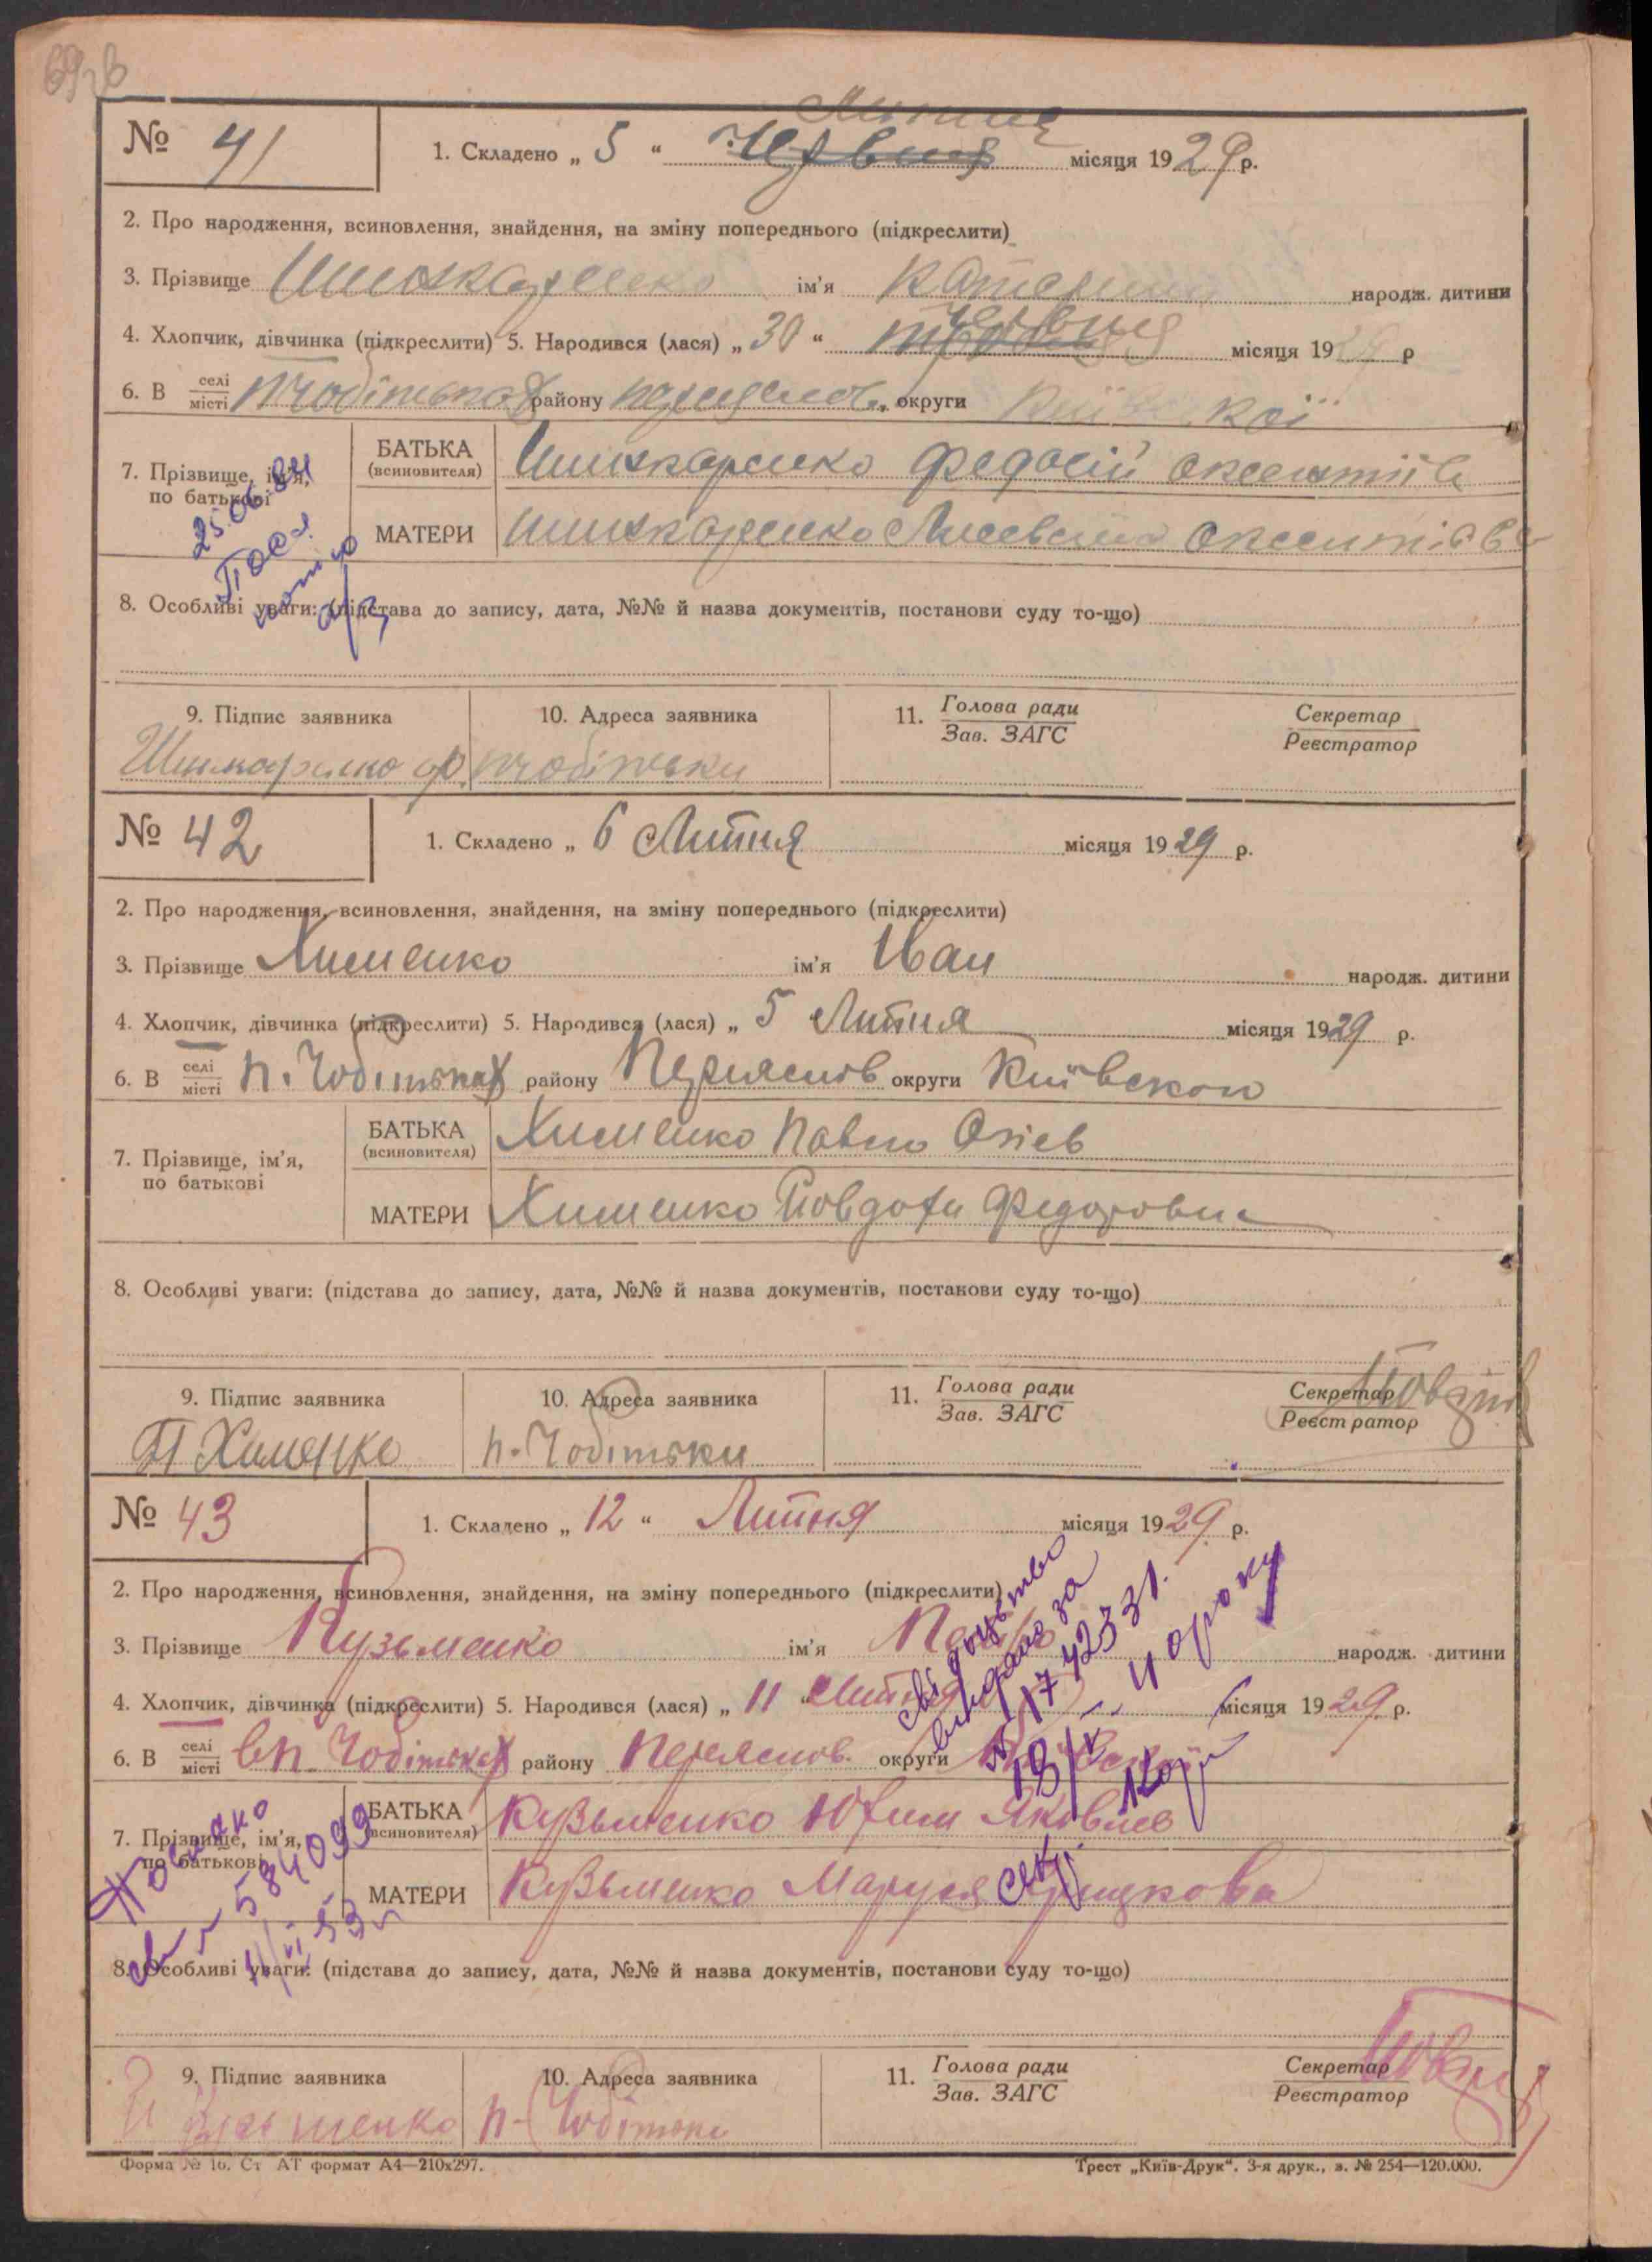 № 41
1. Складено „ 5 “ Червня Липня місяця 1929 р.
2. Про народження, всиновлення, знайдення, на зміну попереднього (підкреслити)
3. Прізвище Шинкаренко ім'я Катерина народж. дитини
4. Хлопчик, дівчинка (підкреслити) 5. Народився (лася) „ 30 “ Червня місяця 1929 р
6. В селі/місті пчобітьках району переяслов. округи Київської
7. Прізвище, ім'я, по батькові
БАТЬКА (всиновителя) Шинкаренко Федосій Оксентіїв
МАТЕРИ Шинкаренко
25 06 84
8. Особливі уваги: (підстава до запису, дата, №№ й назва документів, постанови суду то-що)
9. Підпис заявника 10. Адреса заявника 11. Голова ради/Зав. ЗАГС Секретар/Реєстратор
Шинкаренко ф. пчобітьки
№ 42
1. Складено „ 6 Липня місяця 1929 р.
2. Про народження, всиновлення, знайдення, на зміну попереднього (підкреслити)
3. Прізвище Хименко ім'я Іван народж. дитини
4. Хлопчик, дівчинка (підкреслити) 5. Народився (лася) „ 5 Липня місяця 1929 р.
6. В селі/місті п. Чобітьках району Переяслов округи Київської
7. Прізвище, ім'я, по батькові
БАТЬКА (всиновителя) Хименко Павло
МАТЕРИ Хименко Федоровна
8. Особливі уваги: (підстава до запису, дата, №№ й назва документів, постанови суду то-що)
9. Підпис заявника 10. Адреса заявника 11. Голова ради/Зав. ЗАГС Секретар/Реєстратор
П Хименко п. Чобітьки
№ 43
1. Складено „ 12 “ Липня місяця 1929 р.
2. Про народження, всиновлення, знайдення, на зміну попереднього (підкреслити)
3. Прізвище Кузьменко ім'я народж. дитини
4. Хлопчик, дівчинка (підкреслити) 5. Народився (лася) „ 11 “ Липня місяця 1929 р.
6. В селі/місті вп. Чобітьках району Переяслов. округи
свідоцтво видано за
7. Прізвище, ім'я, по батькові
БАТЬКА (всиновителя) Кузьменко Юхим Яковлев
МАТЕРИ Кузьменко Маруся Грицкова
584099
8. Особливі уваги: (підстава до запису, дата, №№ й назва документів, постанови суду то-що)
9. Підпис заявника 10. Адреса заявника 11. Голова ради/Зав. ЗАГС Секретар/Реєстратор
Кузьменко п. Чобітьки
Форма № 16. Ст АТ формат А4—210х297.
Трест „Київ-Друк“. 3-я друк., з. № 254—120.000.